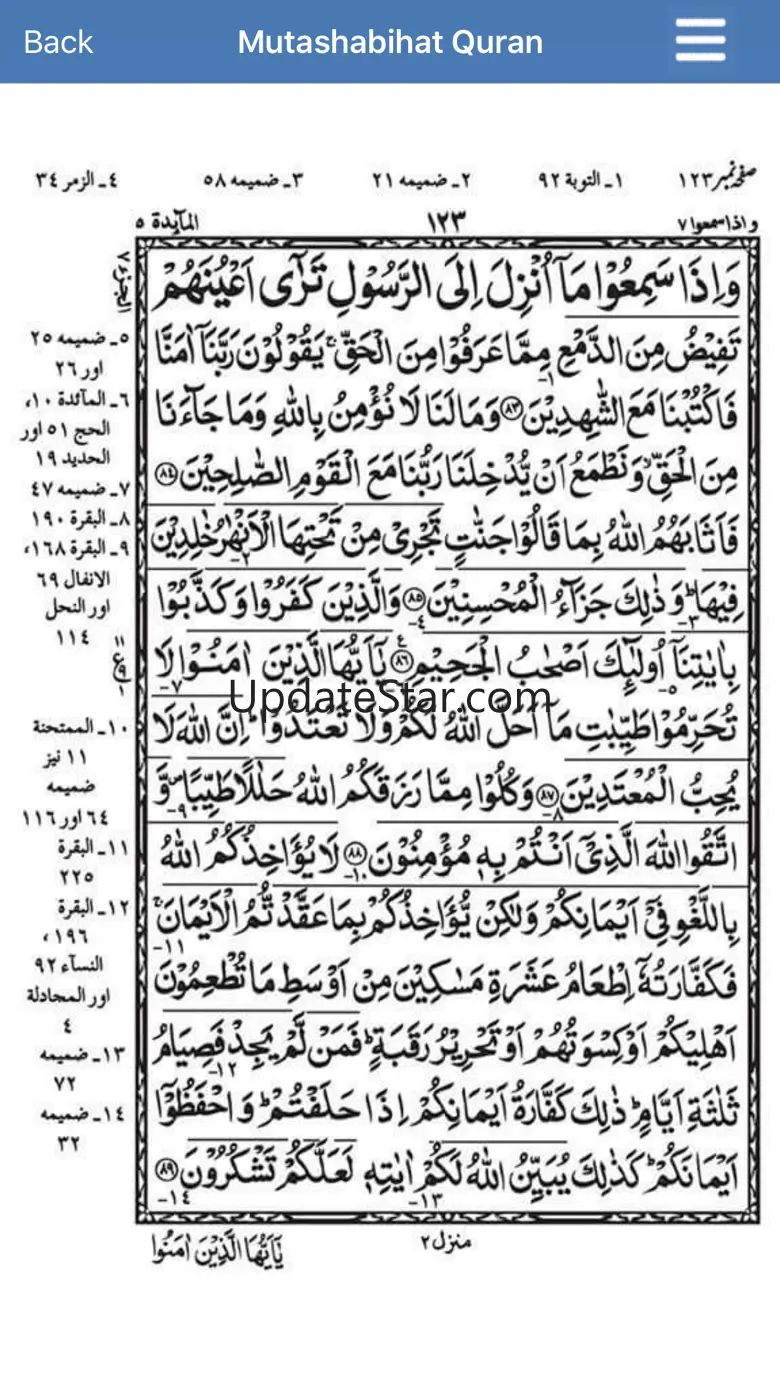 Back
Mutashabihat Quran
صفحہ نمبر ۱۲۳
۱ـ التوبة ۹۲
۲ـ ضمیمه ۲۱
۳ـ ضمیمه ۵۸
٤ـ الزمر ۳٤
واذا سمعوا ۷
۱۲۳
المآيدة ٥
الجزء ۷
وَاِذَا سَمِعُوْا مَآ اُنْزِلَ اِلَى الرَّسُوْلِ تَرٰٓى اَعْيُنَهُمْ
تَفِيْضُ مِنَ الدَّمْعِ مِمَّا عَرَفُوْا مِنَ الْحَقِّ ۚ يَقُوْلُوْنَ رَبَّنَآ اٰمَنَّا
۱-
فَاكْتُبْنَا مَعَ الشّٰهِدِيْنَ ۸۳ وَمَا لَنَا لَا نُؤْمِنُ بِاللّٰهِ وَمَا جَآءَنَا
مِنَ الْحَقِّ ۙ وَنَطْمَعُ اَنْ يُّدْخِلَنَا رَبُّنَا مَعَ الْقَوْمِ الصّٰلِحِيْنَ ۸٤
فَاَثَابَهُمُ اللّٰهُ بِمَا قَالُوْا جَنّٰتٍ تَجْرِيْ مِنْ تَحْتِهَا الْاَنْهٰرُ خٰلِدِيْنَ
۲-
فِيْهَا ؕ وَذٰلِكَ جَزَآءُ الْمُحْسِنِيْنَ ۸٥ وَالَّذِيْنَ كَفَرُوْا وَكَذَّبُوْا
۳-
٤-
بِاٰيٰتِنَآ اُولٰٓئِكَ اَصْحٰبُ الْجَحِيْمِ ۸٦ ع يٰٓاَيُّهَا الَّذِيْنَ اٰمَنُوْا لَا
٥-
۷-
UpdateStar.com
تُحَرِّمُوْا طَيِّبٰتِ مَآ اَحَلَّ اللّٰهُ لَكُمْ وَلَا تَعْتَدُوْا ؕ اِنَّ اللّٰهَ لَا
يُحِبُّ الْمُعْتَدِيْنَ ۸۷ وَكُلُوْا مِمَّا رَزَقَكُمُ اللّٰهُ حَلٰلًا طَيِّبًا ۪ وَّ
۸-
۹-
اتَّقُوا اللّٰهَ الَّذِيْٓ اَنْتُمْ بِهٖ مُؤْمِنُوْنَ ۸۸ لَا يُؤَاخِذُكُمُ اللّٰهُ
۱۰-
بِاللَّغْوِ فِيْٓ اَيْمَانِكُمْ وَلٰكِنْ يُّؤَاخِذُكُمْ بِمَا عَقَّدْتُّمُ الْاَيْمَانَ ۚ
۱۱-
فَكَفَّارَتُهٗٓ اِطْعَامُ عَشَرَةِ مَسٰكِيْنَ مِنْ اَوْسَطِ مَا تُطْعِمُوْنَ
اَهْلِيْكُمْ اَوْ كِسْوَتُهُمْ اَوْ تَحْرِيْرُ رَقَبَةٍ ؕ فَمَنْ لَّمْ يَجِدْ فَصِيَامُ
۱۲-
ثَلٰثَةِ اَيَّامٍ ؕ ذٰلِكَ كَفَّارَةُ اَيْمَانِكُمْ اِذَا حَلَفْتُمْ ؕ وَاحْفَظُوْٓا
اَيْمَانَكُمْ ؕ كَذٰلِكَ يُبَيِّنُ اللّٰهُ لَكُمْ اٰيٰتِهٖ لَعَلَّكُمْ تَشْكُرُوْنَ ۸۹
۱۳-
۱٤-
٥ـ ضمیمه ۲٥
اور ۲٦
٦ـ المآئدة ۱۰،
الحج ٥۱ اور
الحدید ۱۹
۷ـ ضمیمه ٤۷
۸ـ البقرة ۱۹۰
۹ـ البقرة ۱٦۸،
الانفال ٦۹
اور النحل
۱۱٤
۱۱
ع ۹
۱
۱۰ـ الممتحنة
۱۱ نیز
ضمیمه
٦٤ اور ۱۱٦
۱۱ـ البقرة
۲۲٥
۱۲ـ البقرة
۱۹٦،
النسآء ۹۲
اور المجادلة
٤
۱۳ـ ضمیمه
۷۲
۱٤ـ ضمیمه
۳۲
منزل ۲
يٰٓاَيُّهَا الَّذِيْنَ اٰمَنُوْا